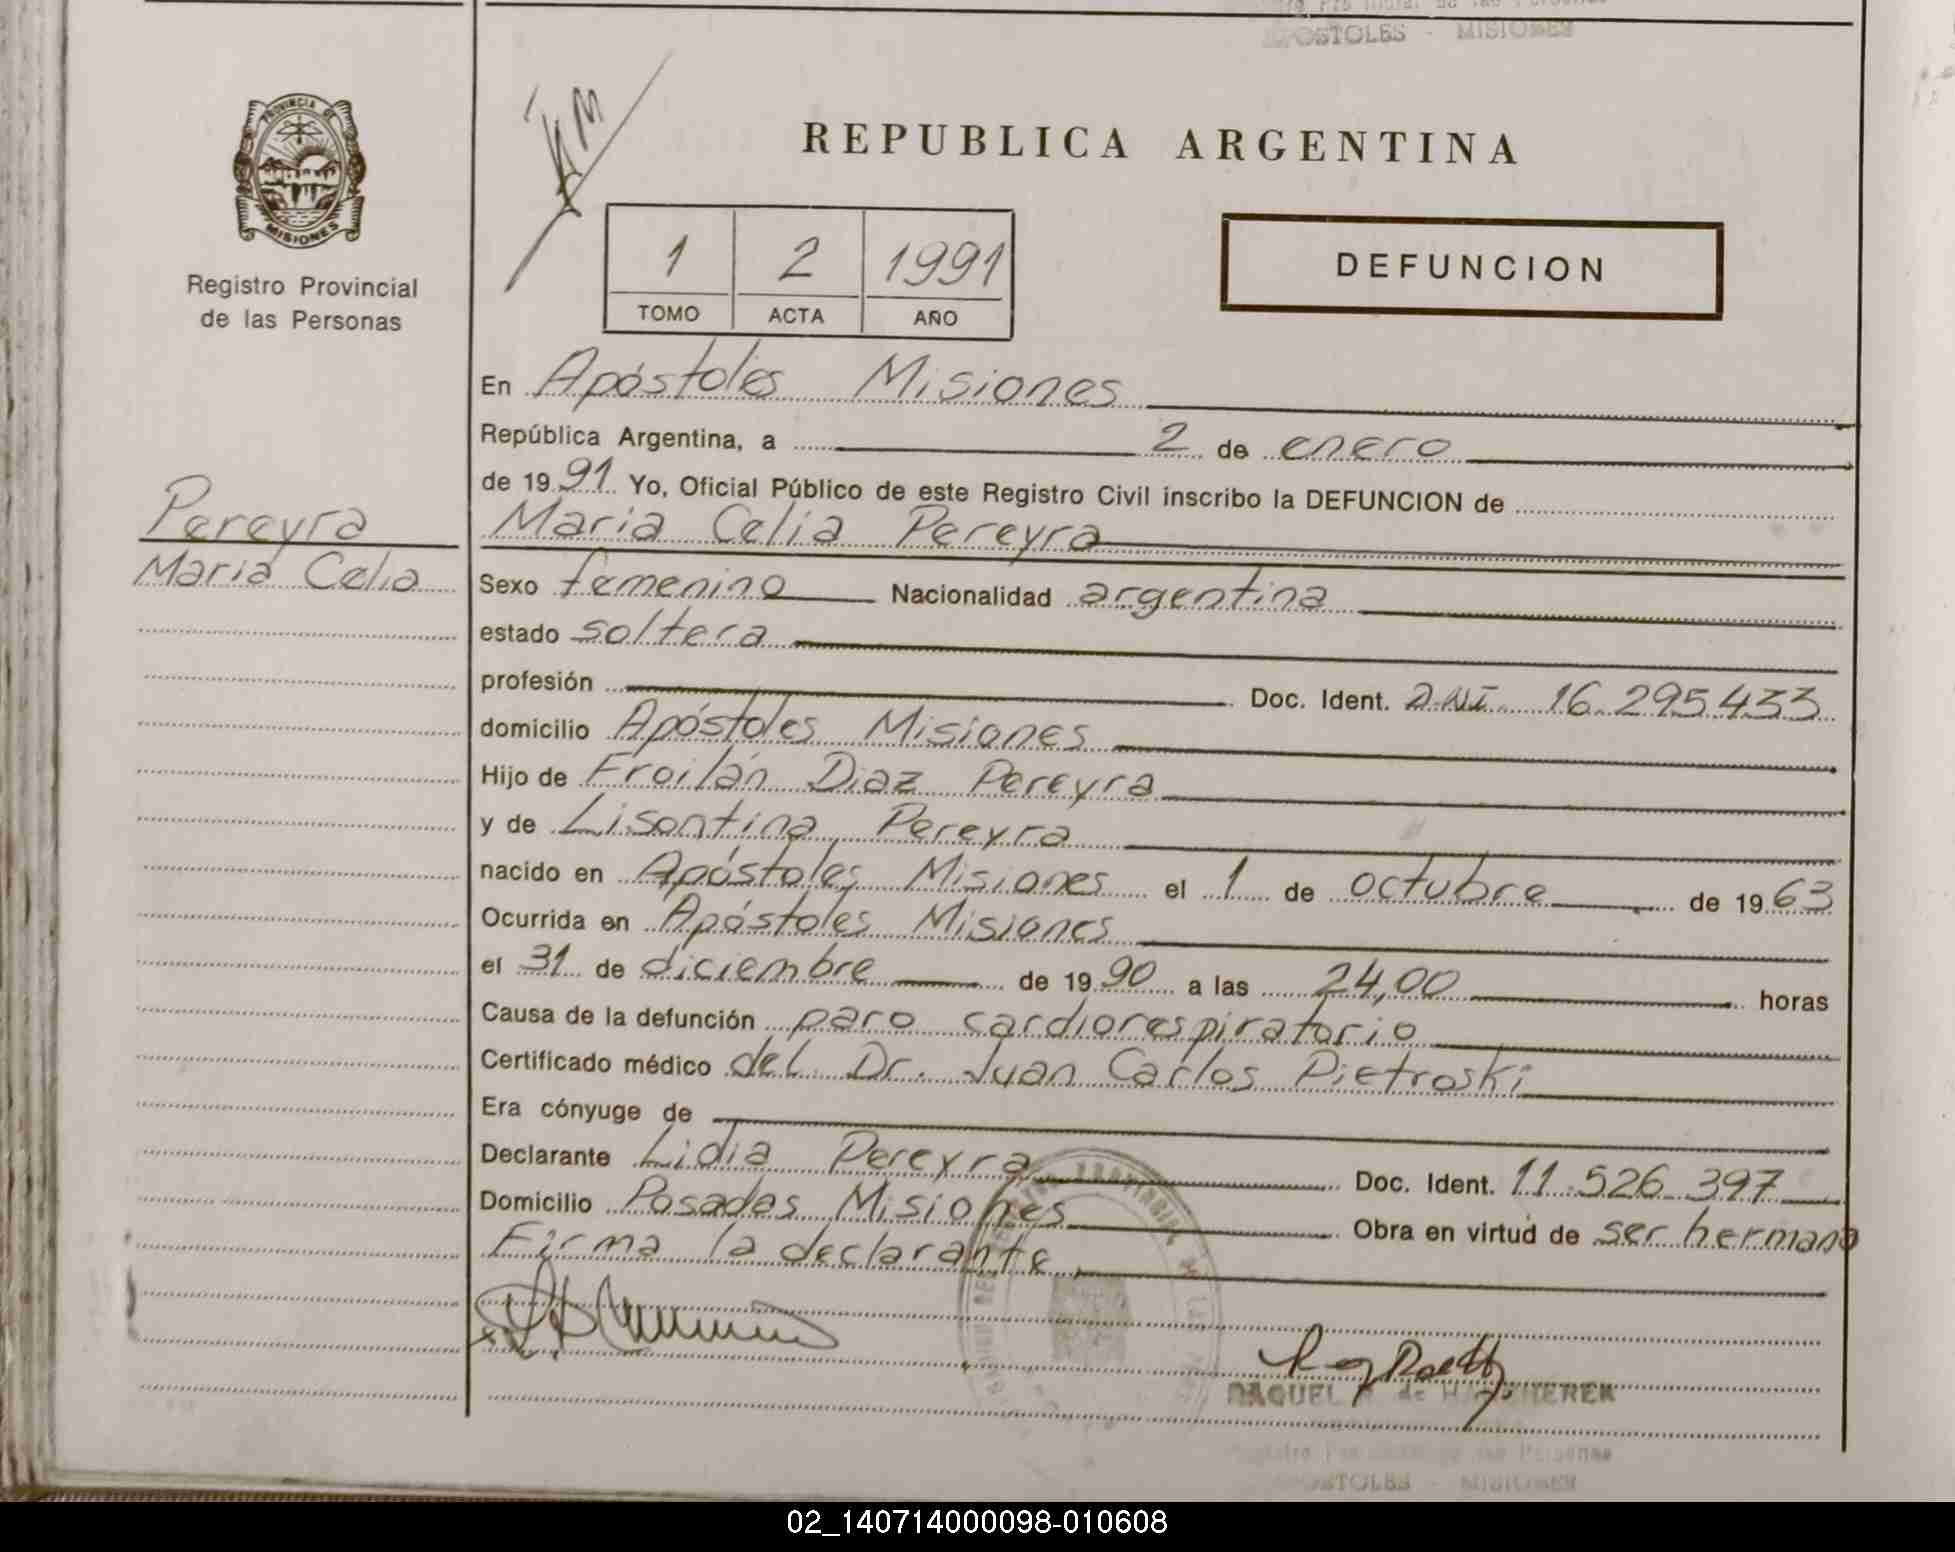 APOSTOLES - MISIONES
PROVINCIA DE
MISIONES
Registro Provincial
de las Personas
REPUBLICA ARGENTINA
1 2 1991
TOMO ACTA AÑO
DEFUNCION
En Apóstoles Misiones
República Argentina, a 2 de enero
de 1991 Yo, Oficial Público de este Registro Civil inscribo la DEFUNCION de
Pereyra
Maria Celia
Maria Celia Pereyra
Sexo femenino Nacionalidad argentina
estado soltera
profesión Doc. Ident. D.N.I. 16.295.433
domicilio Apóstoles Misiones
Hijo de Froilán Diaz Pereyra
y de Lisontina Pereyra
nacido en Apóstoles Misiones el 1 de octubre de 1963
Ocurrida en Apóstoles Misiones
el 31 de diciembre de 1990 a las 24,00 horas
Causa de la defunción paro cardiorespiratorio
Certificado médico del Dr. Juan Carlos Pietroski
Era cónyuge de
Declarante Lidia Pereyra Doc. Ident. 11.526.397
Domicilio Posadas Misiones Obra en virtud de ser hermana
Firma la declarante
RAQUEL de
Registro Provincial de las Personas
APOSTOLES - MISIONES
02_140714000098-010608